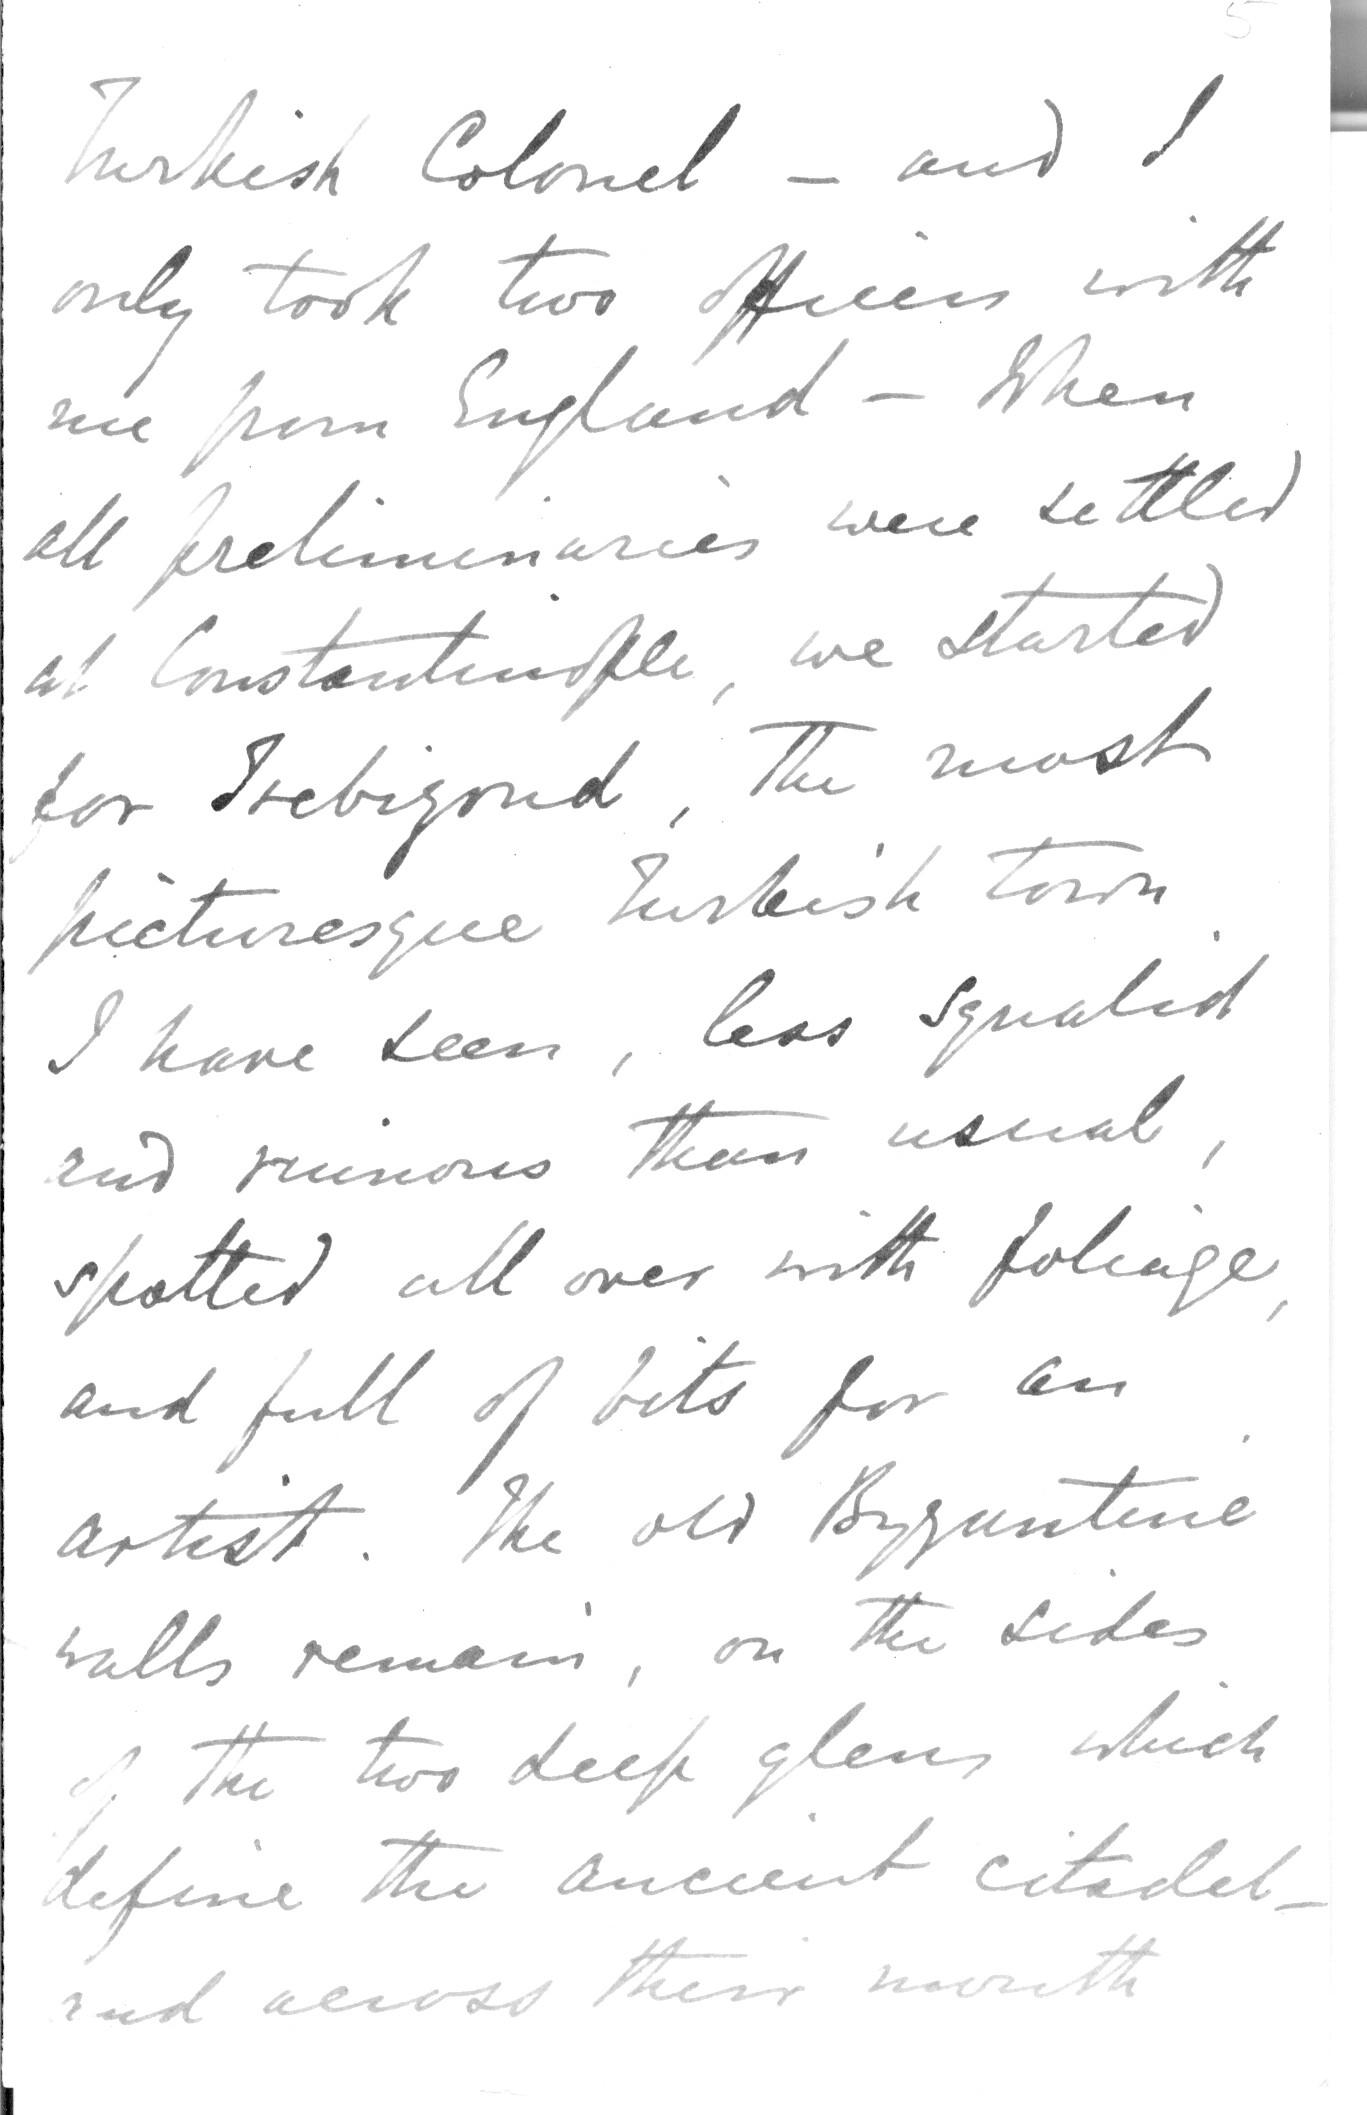 5
Turkish Colonel – and I
only took two officers with
me from England – When
all preliminaries were settled
at Constantinople, we started
for Trebizond, the most
picturesque Turkish town
I have seen, less squalid
and ruinous than usual,
spotted all over with foliage,
and full of bits for an
artist. The old Byzantine
walls remain, on the sides
of the two deep glens which
define the ancient citadel –
and across their mouth